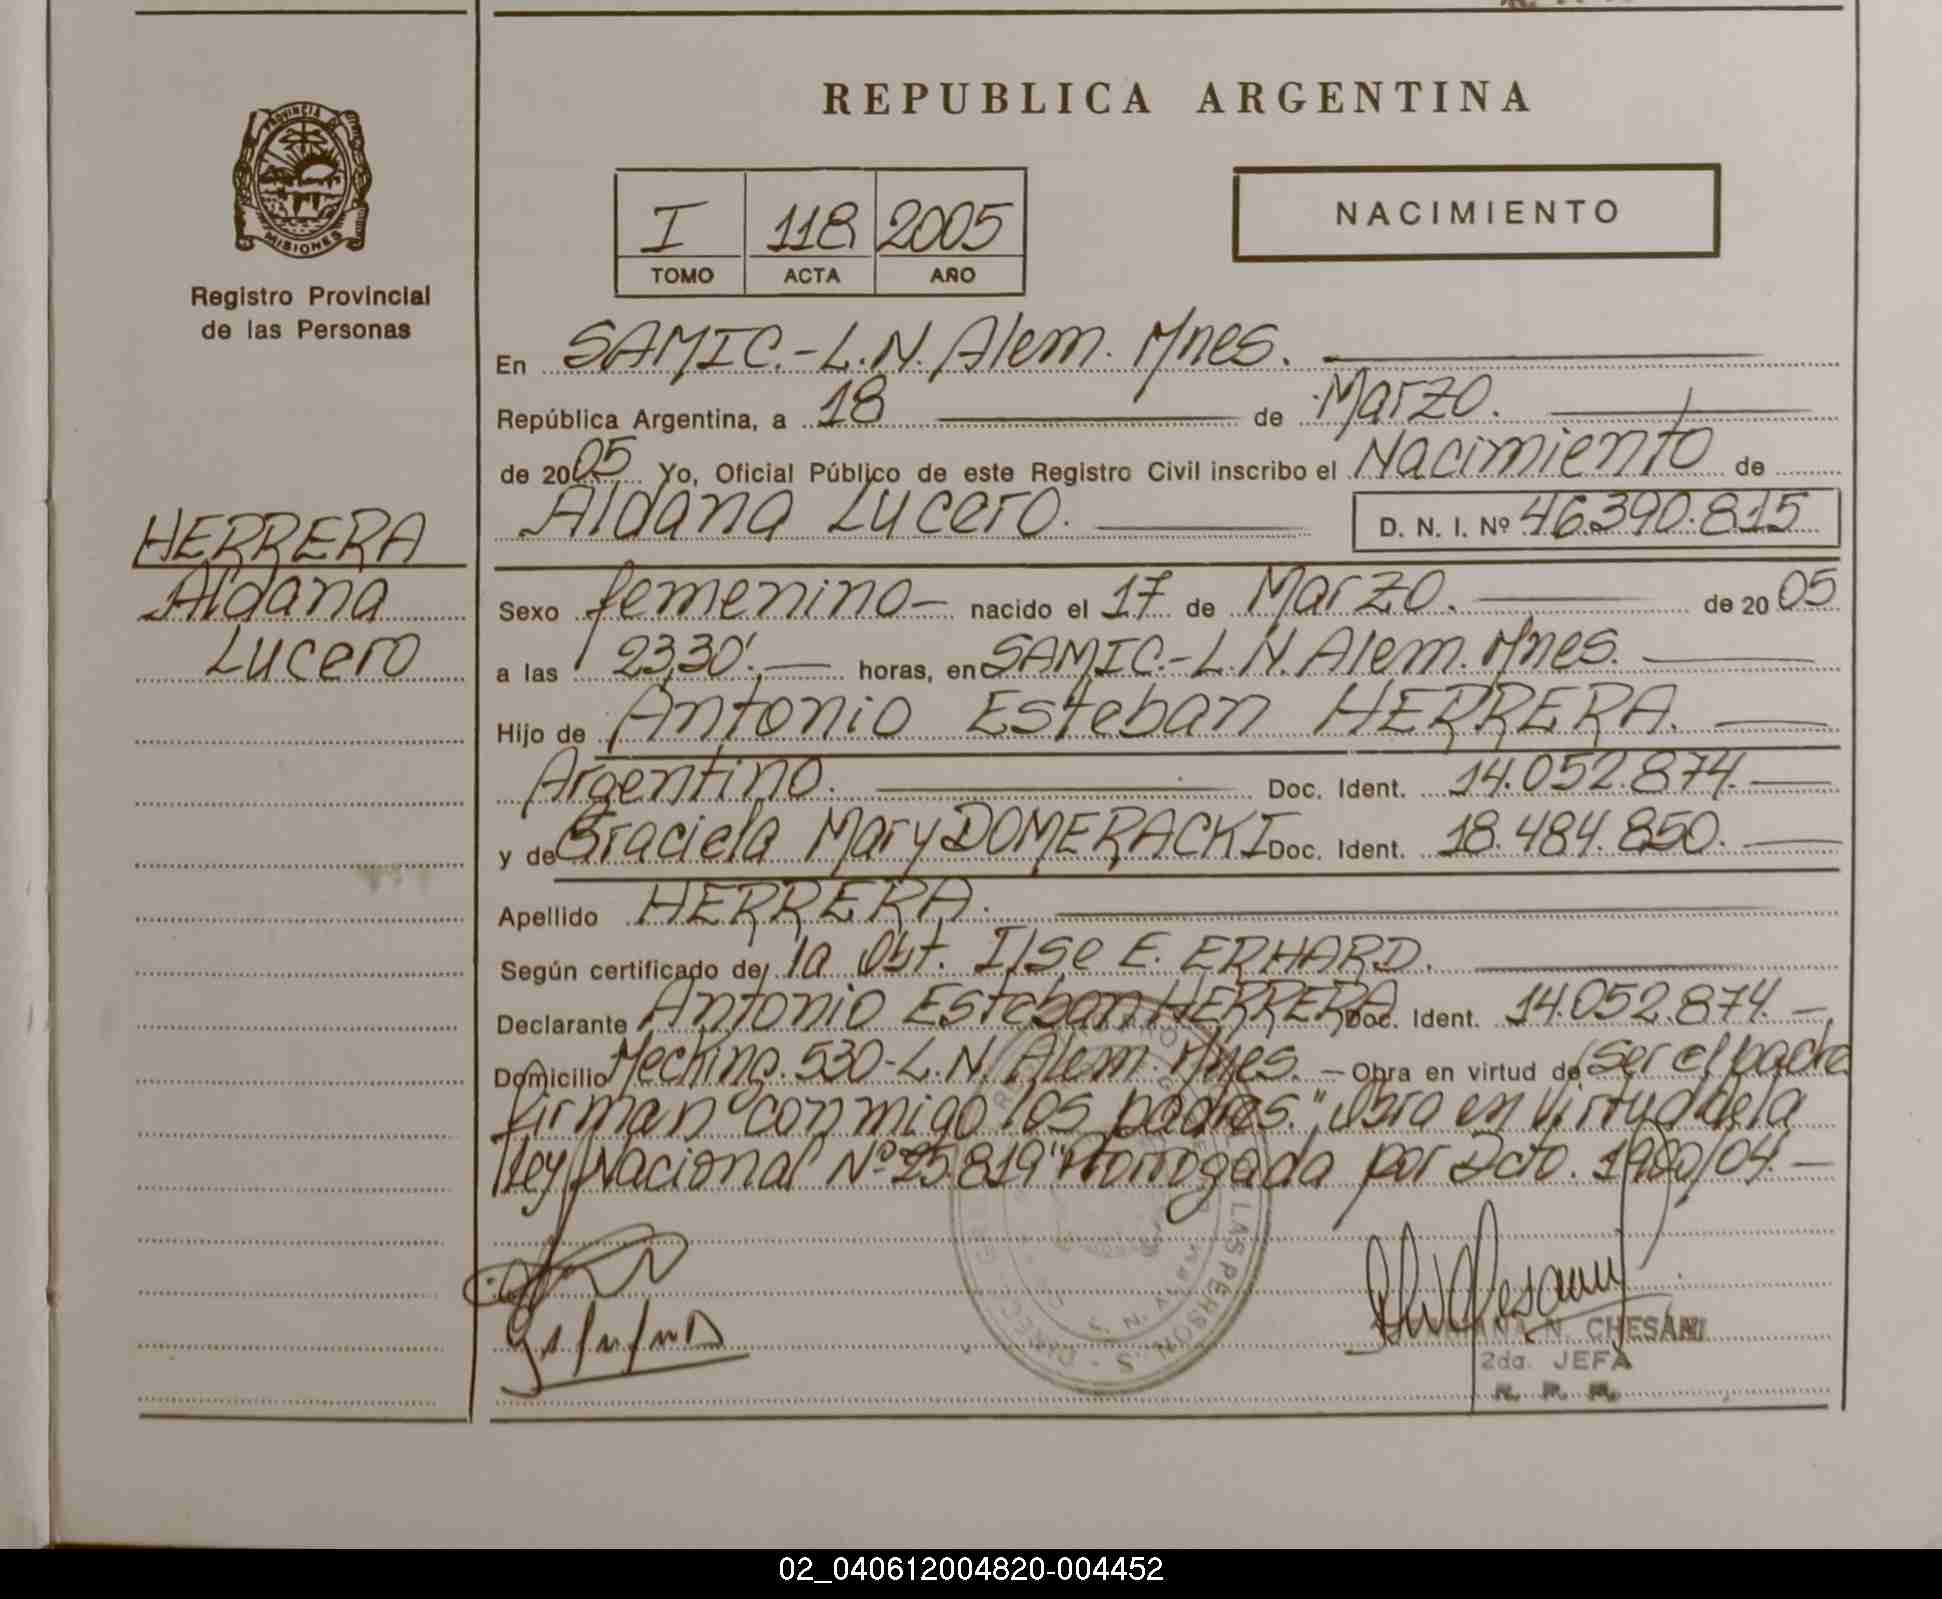 REPUBLICA ARGENTINA
PROVINCIA DE
MISIONES
Registro Provincial
de las Personas
I 118 2005
TOMO ACTA AÑO
NACIMIENTO
En SAMIC.-L.N. Alem. Mnes.
República Argentina, a 18 de Marzo.
de 2005 Yo, Oficial Público de este Registro Civil inscribo el Nacimiento de
Aldana Lucero. D. N. I. Nº 46.390.815
HERRERA
Aldana
Lucero
Sexo femenino- nacido el 17 de Marzo. de 2005
a las 23,30'. horas, en SAMIC.-L.N. Alem. Mnes.
Hijo de Antonio Esteban HERRERA.
Argentino. Doc. Ident. 14.052.874.-
y de Graciela Mary DOMERACKI Doc. Ident. 18.484.850.
Apellido HERRERA.
Según certificado de la Obst. Ilse E. ERHARD.
Declarante Antonio Esteban HERRERA Doc. Ident. 14.052.874.-
Domicilio 530-L.N. Alem. Mnes. - Obra en virtud de ser el padre
firman conmigo los padres. "Obra en Virtud de la
Ley Nacional Nº 25.819" Prorrogada por Dcto. /04.-
LAS PERSONAS
N. CHESANI
2da. JEFA
02_040612004820-004452